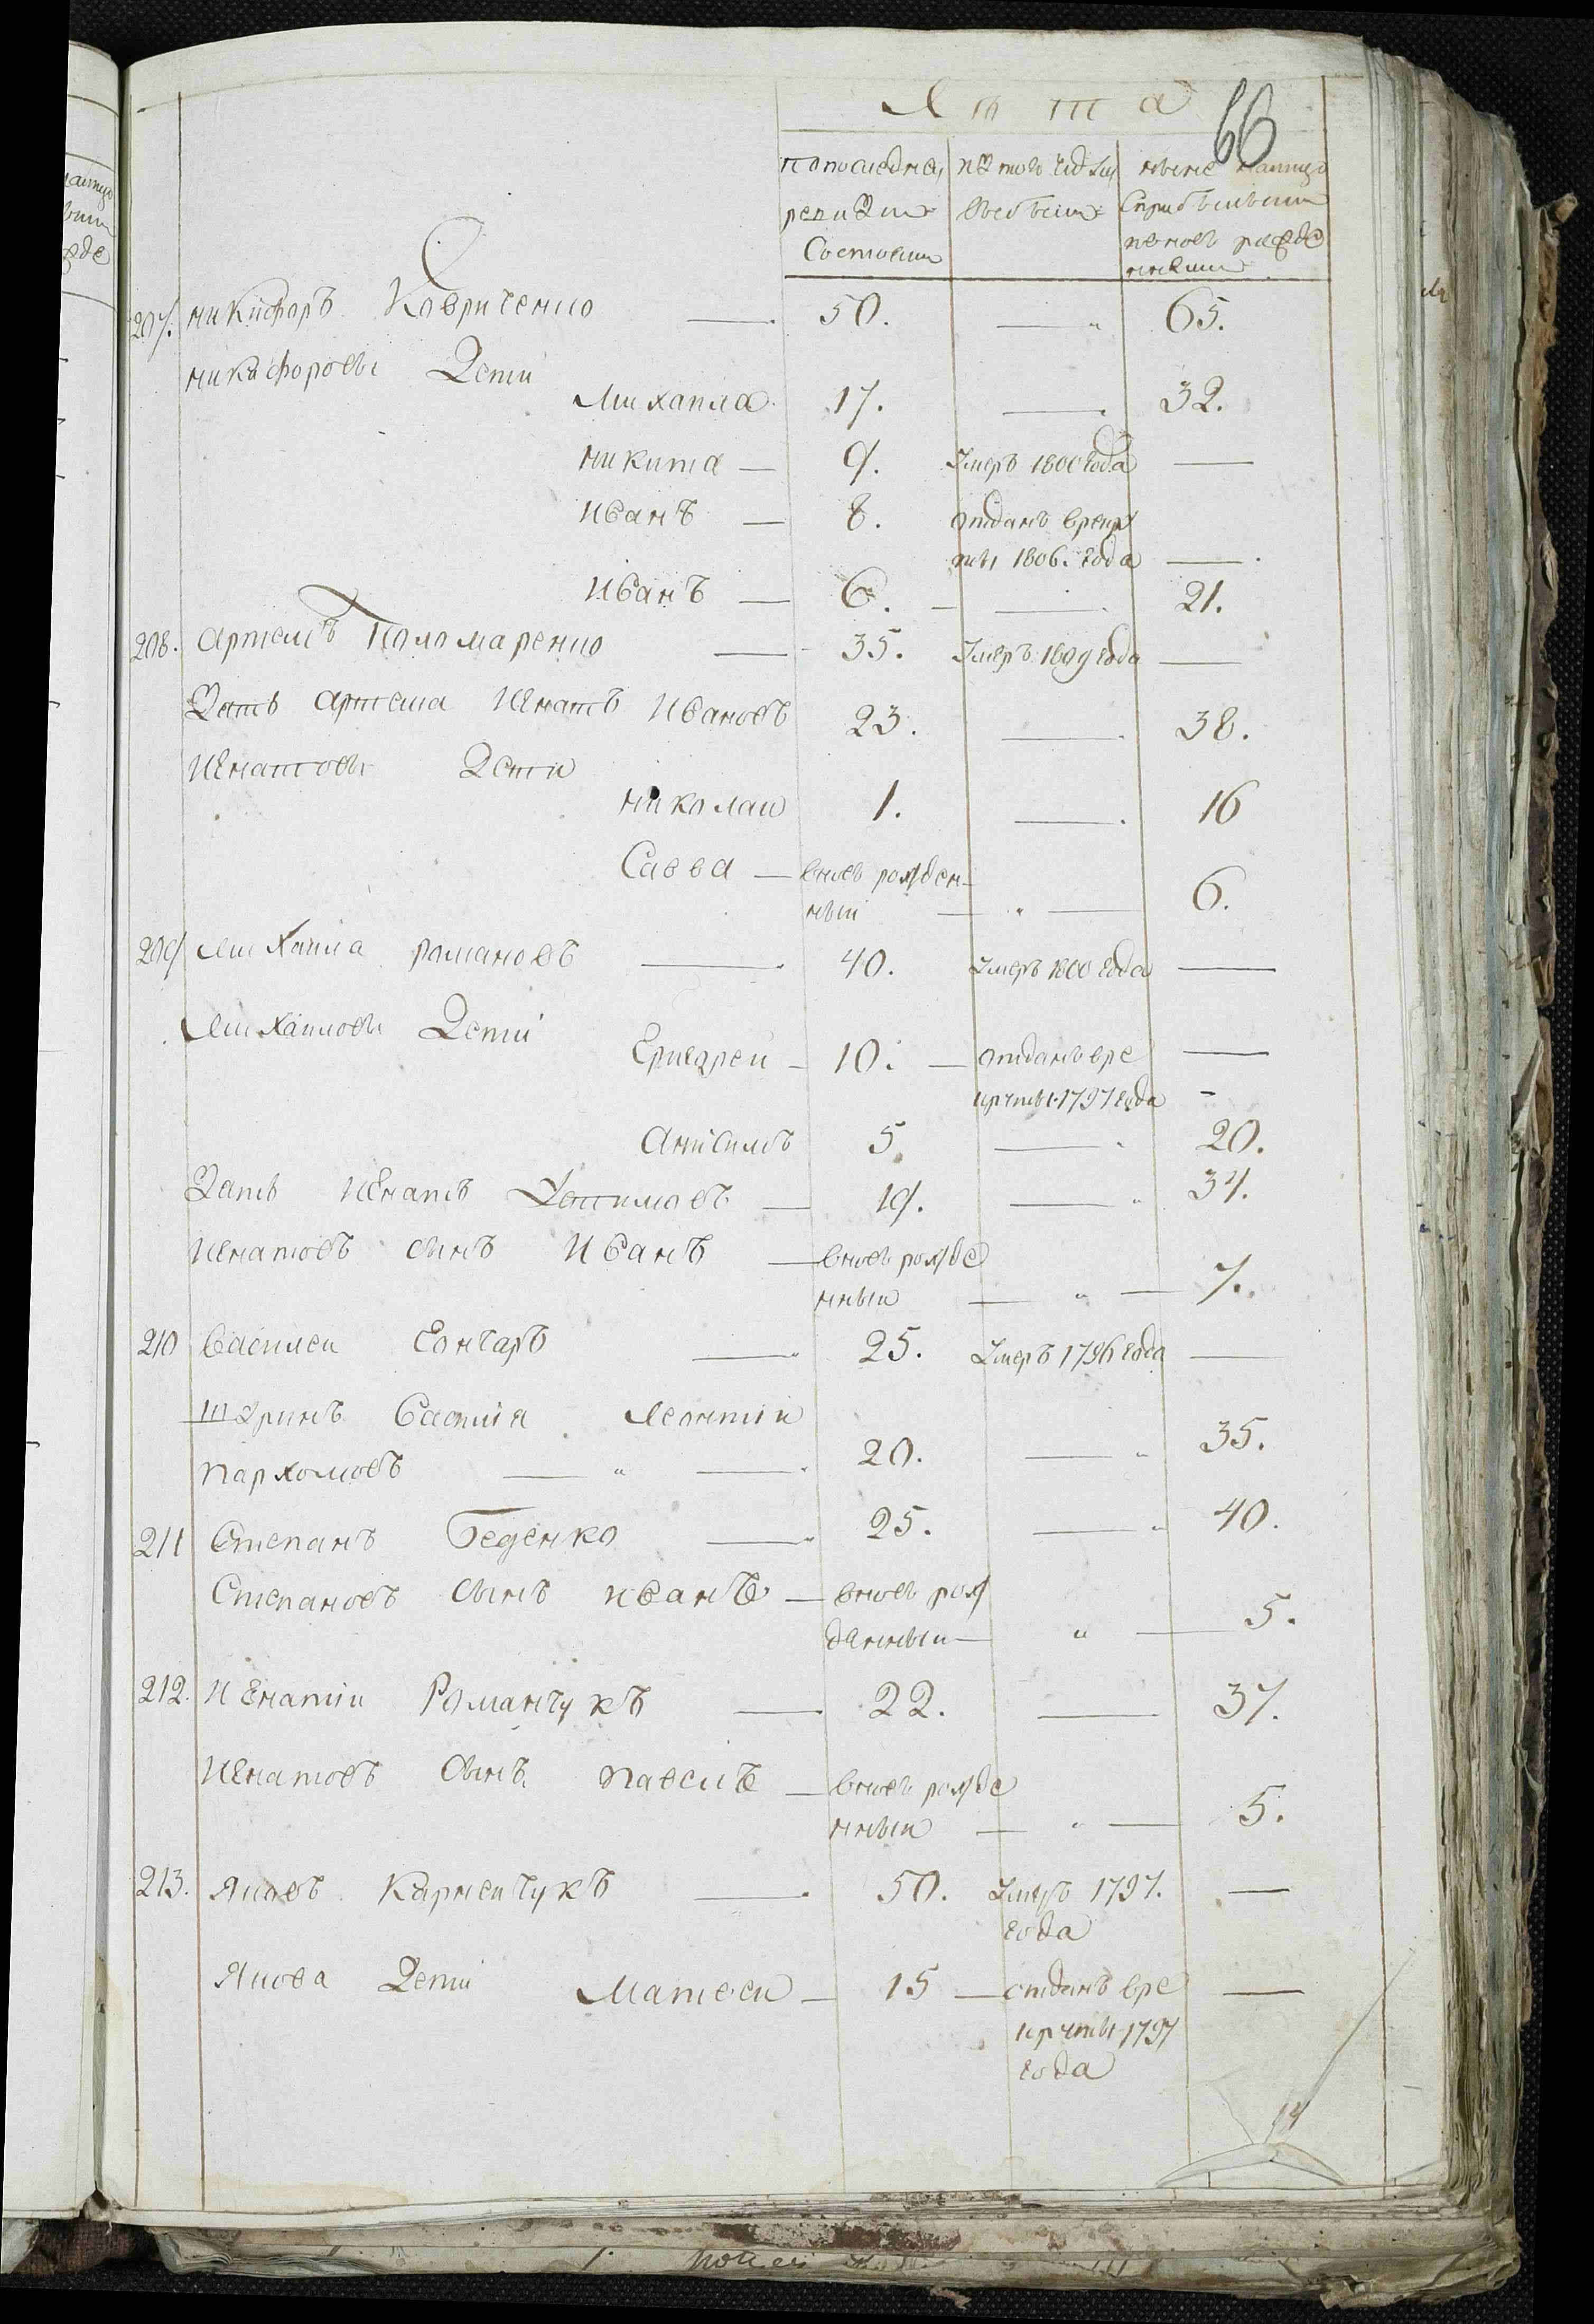 Лѣта
66
по последнеи
ревизіи
Состоятъ
изъ того числа
выбыли
ныне налицо
Съприбылыми
и вновь рожде
нными
207. Никифоръ Ковриченко — 50. — " 65.
Никифоровы Дети
Михаила 17. — 32.
Никита — 9. Умеръ 1800 года —
Иванъ — 8. отданъ врекру
ты 1806. года —
Иванъ — 6. — 21.
208. Артемъ Поломаренко — 35. Умеръ 1809 года —
Зать Артема Игнатъ Ивановъ 23. — 38.
Игнатовы Дети
Николаи 1. — 16
Савва — вновь рожден-
ныи — " — 6.
209 Михаила Романовъ — 40. Умеръ 1800 года —
Михаиловы Дети
Григореи — 10. — отданъ вре
круты 1797 года -
Анисимъ 5. — 20.
Зать Игнатъ — 19. — " 34.
Игнатовъ сынъ Иванъ — вновь рожде
нныи — " — 7.
210 Василеи Гончаръ — 25. Умеръ 1796 года —
Шуринъ Василія Леонтіи
Пархомовъ — " — 20. — " 35.
211 Степанъ Беденко — 25. — " 40.
Степановъ Сынъ Иванъ — вновь рож
денныи — " — 5.
212. Игнатіи Романчукъ — 22. — 37.
Игнатовъ Сынъ Павелъ — вновь рожде
нныи — " — 5.
213. Яковъ Карнеичукъ — 50. Умеръ 1797. —
года
Якова Дети Матвеи — 15 — отданъ вре
круты 1797
года